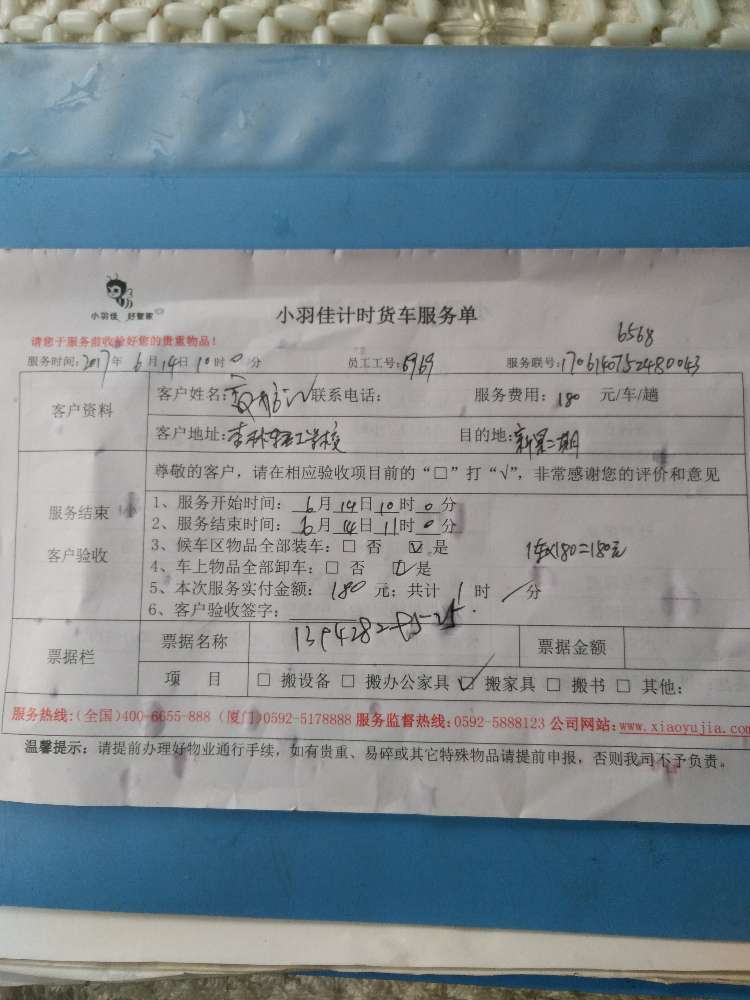 小羽佳 好管家
小羽佳计时货车服务单
请您于服务前收拾好您的贵重物品！
6568
服务时间：2017年 6 月 14日 10 时 0 分 员工工号：6969 服务联号：1706140752480043
客户资料
客户姓名： 联系电话： 服务费用：180 元/车/趟
客户地址：杏林轻工学校 目的地：新景二期
尊敬的客户，请在相应验收项目前的“□”打“√”，非常感谢您的评价和意见
服务结束
客户验收
1、服务开始时间：6月14日10时0分
2、服务结束时间：6月14日11时0分
3、候车区物品全部装车：□ 否 ☑ 是
1车x180=180元
4、车上物品全部卸车：□ 否 ☑ 是
5、本次服务实付金额：180 元；共计 1 时 / 分
6、客户验收签字：
票据栏
票据名称 票据金额
项 目 □ 搬设备 □ 搬办公家具 ☑ 搬家具 □ 搬书 □ 其他：
服务热线：(全国)400-6655-888 (厦门)0592-5178888 服务监督热线：0592-5888123 公司网站：www.xiaoyujia.com
温馨提示：请提前办理好物业通行手续，如有贵重、易碎或其它特殊物品请提前申报，否则我司不予负责。